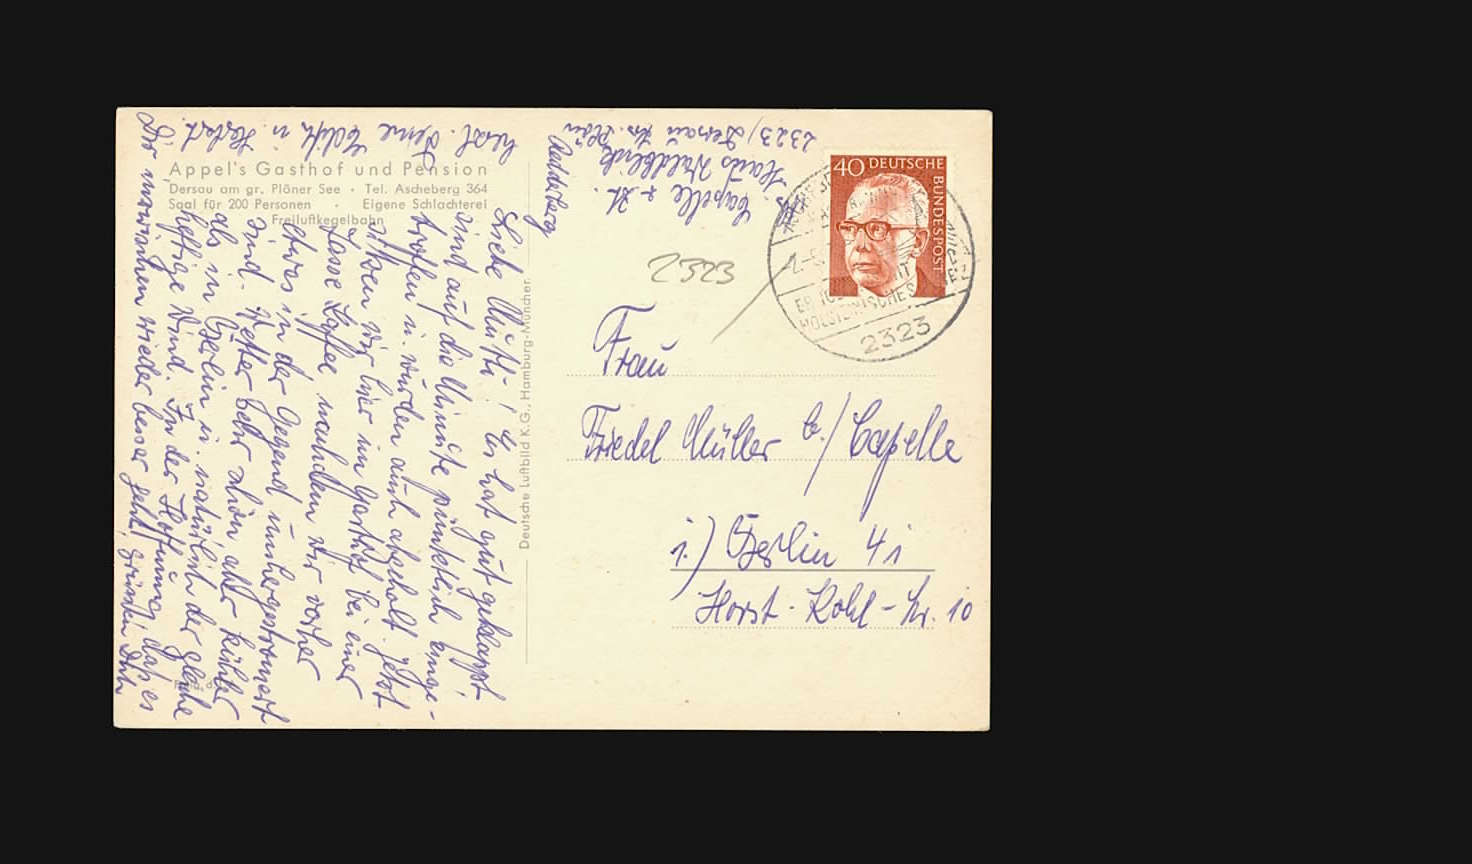 Appel's Gasthof und Pension
Dersau am gr. Plöner See · Tel. Ascheberg 364
Saal für 200 Personen · Eigene Schlachterei
Freiluftkegelbahn
Liebe Mutti! Es hat gut geklappt
sind auf die Minute pünktlich einge-
troffen u. wurden auch abgeholt. Jetzt
sitzen wir hier im Gasthof bei einer
Tasse Kaffee nachdem wir vorher
etwas in der Gegend umhergestromert
sind. Wetter sehr schön aber kühler
als in Berlin u. natürlich der gleiche
heftige Wind. In der Hoffnung, daß es
Dir inzwischen wieder besser geht, grüßen Dich
herzl. Deine Edith u. Herbert
Deutsche Luftbild K.G., Hamburg-München
Capelle z. Zt.
Haus Waldblick
2323/Dersau Krs. Plön
2323
40 DEUTSCHE BUNDESPOST
HOLSTEINISCHE S
2323
Frau
Friedel Müller b./Capelle
1.) Berlin 41
Horst-Kohl-Str. 10